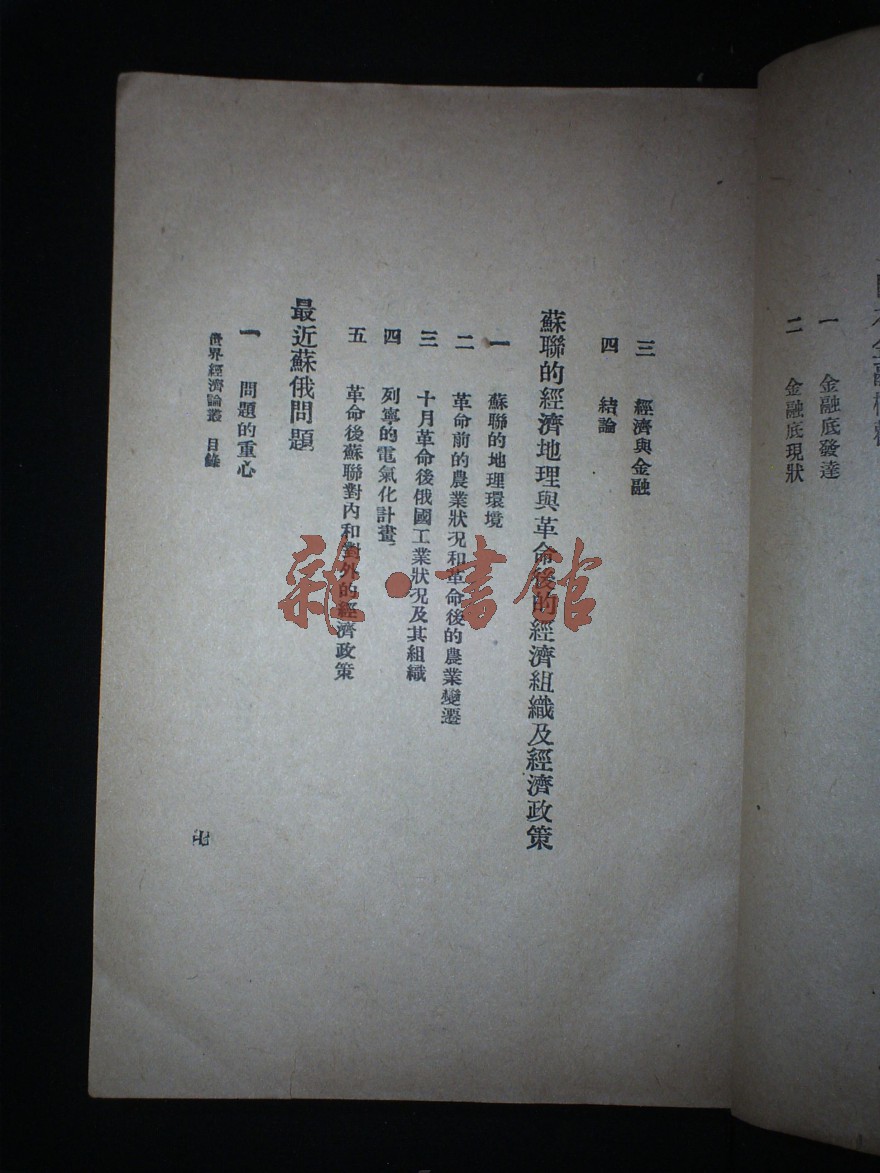 一　金融底發達
二　金融底現狀
三　經濟與金融
四　結論
蘇聯的經濟地理與革命後的經濟組織及經濟政策
一　蘇聯的地理環境
二　革命前的農業狀況和革命後的農業變遷
三　十月革命後俄國工業狀況及其組織
四　列寧的電氣化計畫
五　革命後蘇聯對內和對外的經濟政策
最近蘇俄問題
一　問題的重心
世界經濟論叢　目錄
七
雜·書館